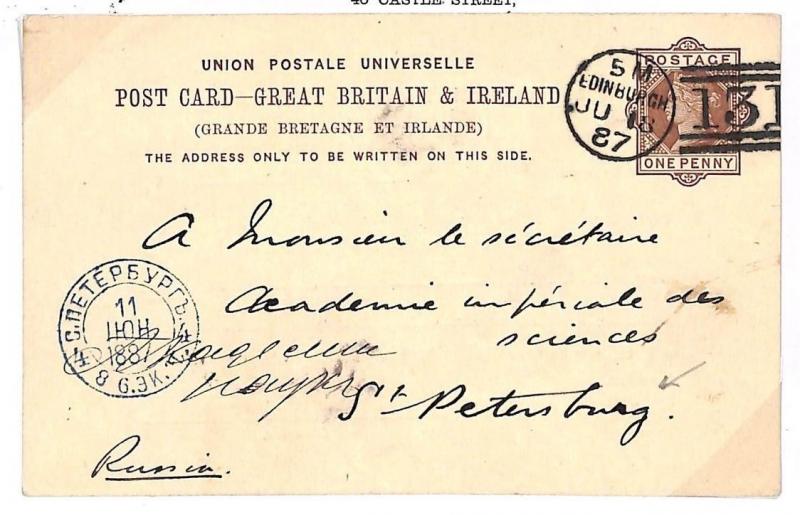 40 CASTLE STREET,
UNION POSTALE UNIVERSELLE
POST CARD—GREAT BRITAIN & IRELAND
(GRANDE BRETAGNE ET IRLANDE)
THE ADDRESS ONLY TO BE WRITTEN ON THIS SIDE.
POSTAGE
ONE PENNY
5 M
EDINBURGH
JU 18
87
131
A Monsieur le sécrétaire
Academie impériale des
sciences
St. Petersburg.
Russia.
С.ПЕТЕРБУРГЪ
11
ІЮН
1887
4 4
8 Э.К.
Академия